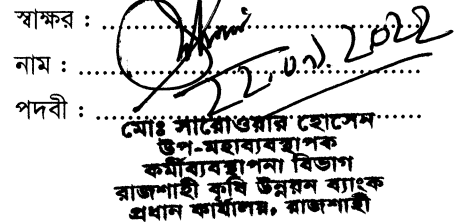 স্বাক্ষর : 
নাম : 
পদবী : 
২২.০৯.২০২২
মোঃ সারোওয়ার হোসেন
উপ-মহাব্যবস্থাপক
কর্মীব্যবস্থাপনা বিভাগ
রাজশাহী কৃষি উন্নয়ন ব্যাংক
প্রধান কার্যালয়, রাজশাহী